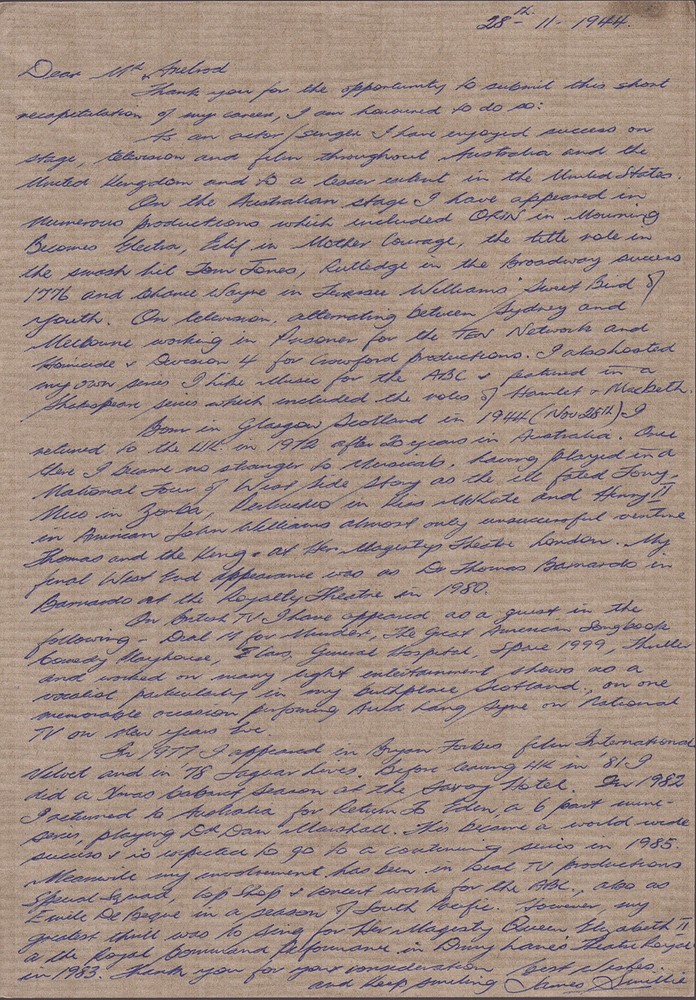 28th- 11- 1944.
Dear Mr Axelrod
Thank you for the opportunity to submit this short
recapitulation of my career, I am honoured to do so:
As an actor/singer I have enjoyed success on
stage, television and film throughout Australia and the
United Kingdom and to a lesser extent in the United States.
On the Australian stage I have appeared in
numerous productions which included ORIN in Mourning
Becomes Electra, Eilif in Mother Courage, the title role in
the smash hit Tom Jones, Rutledge in the Broadway success
1776 and Chance Wayne in Tennessee Williams Sweet Bird of
Youth. On television, alternating between Sydney and
Melbourne working in Prisoner for the TEN Network and
Homicide & Division 4 for Crawford productions. I also hosted
my own series I Like Music for the ABC & featured in a
Shakespean series which included the roles of Hamlet & Macbeth.
Born in Glasgow Scotland in 1944 (Nov 28th) I
returned to the UK. in 1972 after 20 years in Australia. Once
there I became no stranger to Musicals, having played in a
National Tour of West Side Story as the ill fated Tony,
Nico in Zorba, Petruchio in Kiss Me Kate and Henry II
in American John Williams almost only unsuccessful venture
Thomas and the King at Her Majestys Theatre London. My
final West End appearance was as Dr Thomas Barnardo in
Barnardo at the Royalty Theatre in 1980.
On British TV I have appeared as a guest in the
following - Dial M for Murder, The Great American Songbook
Comedy Playhouse, General Hospital, Space 1999, Thriller
and worked on many light entertainment shows as a
vocalist particularly in my birthplace Scotland, on one
memorable occasion performing Auld Lang Syne on National
TV on New years Eve.
In 1977 I appeared in Bryan Forbes film International
Velvet and in '78 Jaguar Lives. Before leaving UK in '81 I
did a Xmas cabaret season at the Savoy Hotel. In 1982
I returned to Australia for Return To Eden, a 6 part mini-
series, playing Dr Dan Marshall. This became a world wide
success & is expected to go to a continuing series in 1985.
Meanwhile my involvement has been in local TV productions
Special Squad, Cop Shop & concert work for the ABC, also as
Emile De Beque in a season of South Pacific. However my
greatest thrill was to sing for Her Majesty Queen Elizabeth II
at the Royal Command Performance in Drury Lane's Theatre Royal
in 1983. Thank you for your consideration best wishes.
and keep smiling James Smillie